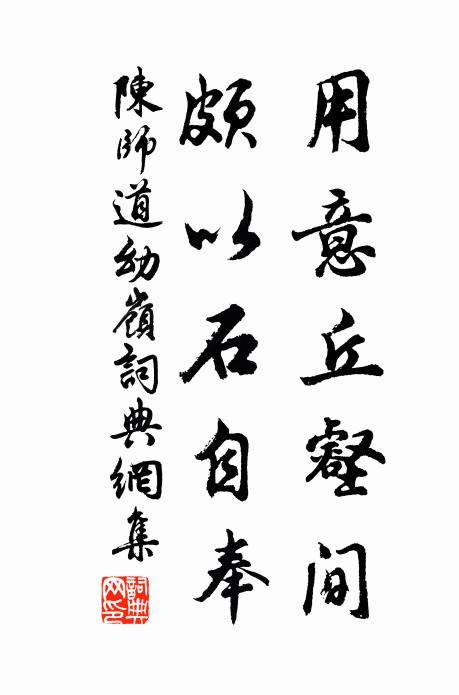 用意丘壑间
颇以石自奉
陳師道幼嶺詞典網集
詞典网印